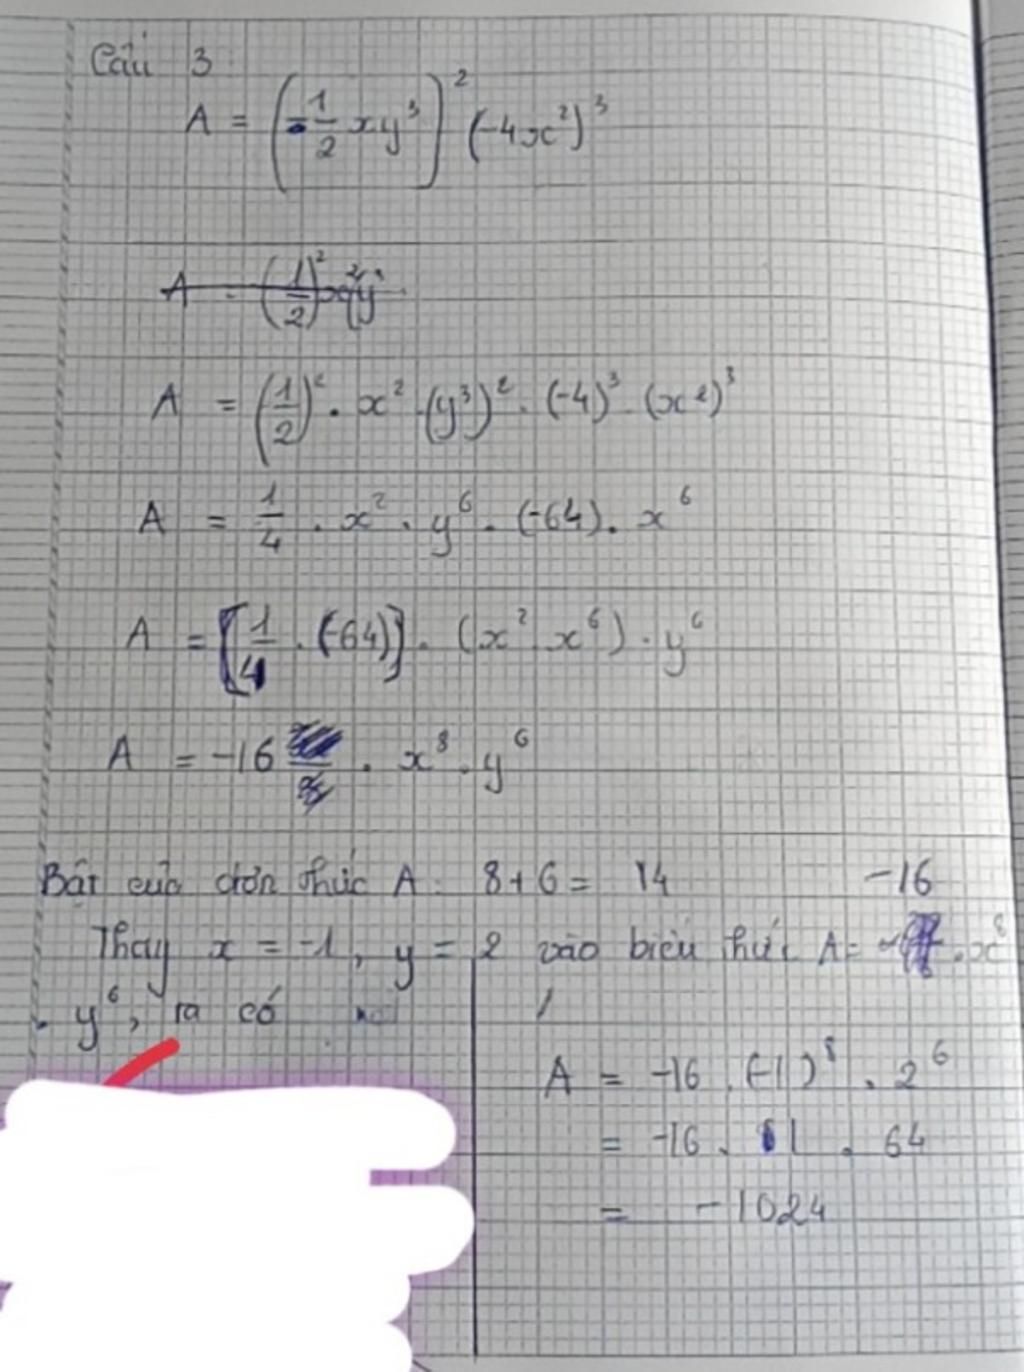 Câu 3
A = (-1/2 xy³)² (-4x²)³
A = (1/2)² · x² · (y³)² · (-4)³ · (x²)³
A = 1/4 · x² · y⁶ · (-64) · x⁶
A = [1/4 · (-64)] · (x² · x⁶) · y⁶
A = -16 · x⁸ · y⁶
Bật của đơn thức A : 8 + 6 = 14
Thay x = -1, y = 2 vào biểu thức A = -16 · x⁸
· y⁶, ta có
A = -16 · (-1)⁸ · 2⁶
= -16 · 1 · 64
= -1024